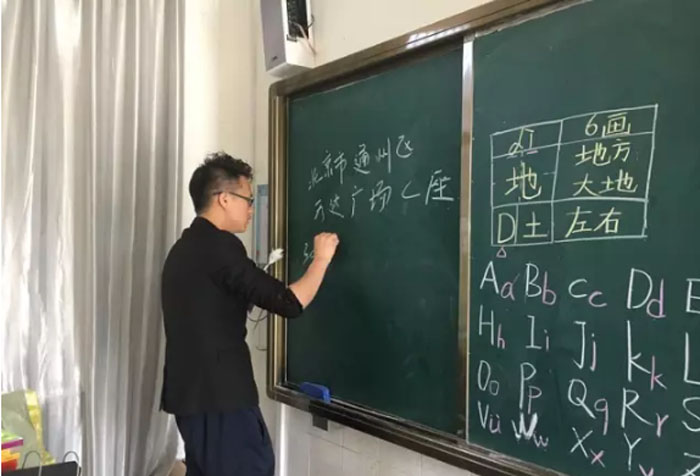 北京市通州区
万达广场C座
30
dì 6画
地 地方
大地
D 土 左右
Aa Bb Cc Dd E
Hh Ii Jj Kk L
Oo Pp Qq Rr S
Vv Ww Xx Y